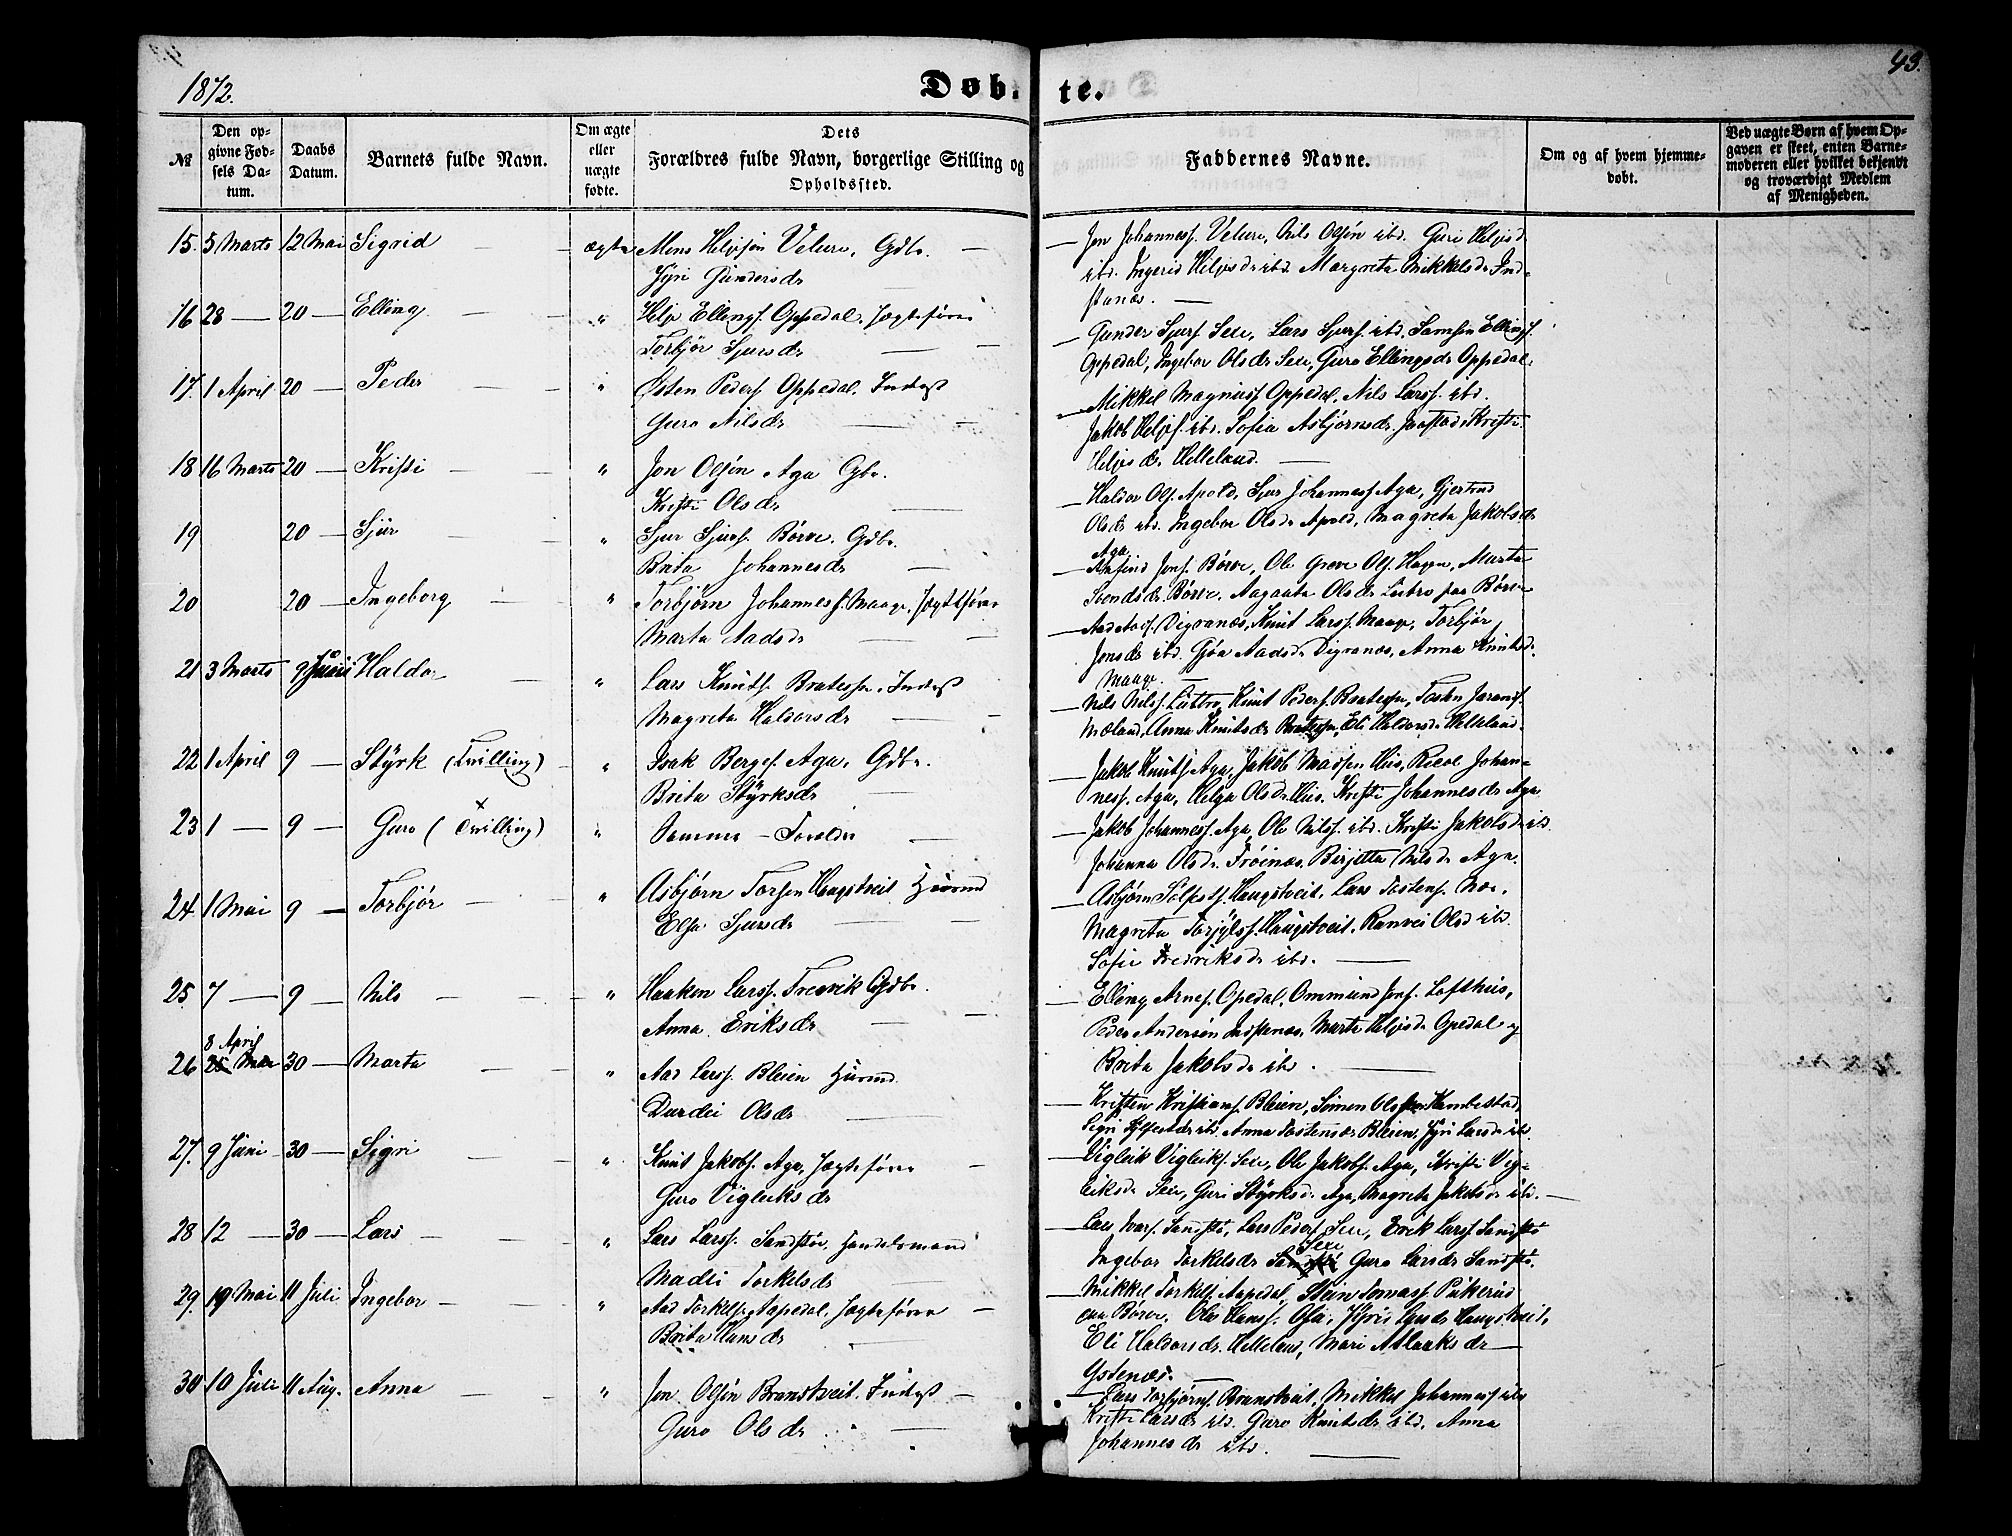 1872.
Døb-
te.
43.
No
Den op-
givne Fød-
sels Da-
tum.
Daabs
Datum.
Barnets fulde Navn.
Om ægte
eller
uægte
fødte.
Dets
Forældres fulde Navn, borgerlige Stilling og
Opholdssted.
Faddernes Navne.
Om og af hvem hjemme-
døbt.
Ved uægte Børn af hvem Op-
gaven er skeet, enten Barne-
moderen eller hvilket bekjendt
og troværdigt Medlem
af Menigheden.
15. 5 Marts 12 Mai Sigrid — — ægte Mons Heljesøn Velure, Gdbr. —
Gundersdr
Jon Johannesf. Velure, Nils Olsøn ibd. Guri Heljesd
ibd. Ingerid Heljesdr ibd. Margreta Mikkelsdr Ind-
stenæs. —
16 28 — 20 — Elling — — " Helje Ellingf. Oppedal, Jægtefører
Torbjør Sjursdr — —
Gunder Sjurf Sexe, Lars Sjurf. ibd. Samson Ellingf.
Oppedal, Ingebor Olsdr Sexe, Guro Ellingsdr Oppedal.
17. 1 April 20 — Peder — — " Østen Pederf Oppedal, Inderst
Guro Nilsdr — —
Mikkel Magnusf Oppedal, Nils Larsf. ibd.
Jakob Heljef. ibd. Sofia Asbjørnsdr Jaastad, Kristi
Heljesdr. Helleland. —
18 16 Marts 20 — Kristi — — " Jon Olsøn Aga Gbr.
Kristi Olsdr —
Haldor Olf. Apold, Sjur Johannesf Aga, Gjertrud
Olsdr ibd. Ingebor Olsdr Apold, Magreta Jakobsdr
Aga
19 20 — Sjur — — " Sjur Sjursf. Børve. Gdbr.
Brita Johannesdr —
Jonf. Børve, Ole Greve Olf. Hagen, Marta
Svendsdr. Børve, Aagaata Olsdr Lutro paa Børve
20 20 — Ingeborg — — " Torbjørn Johannesf. Maage, Jægtefører
Marta Aadsdr — —
Aad Aadf. Digranæs, Knut Larsf. Maage, Torbjør
Jonsdr ibd. Gjøa Aadsdr Digranæs, Anna Knutsdr.
Maage. —
21 3 Marts 9 Juni Haldor — " Lars Knutf. Bratespe, Inderst
Magreta Haldorsdr — —
Nils Nilsf. Lutro, Knut Pederf. Bratespe, Tosten Jaranf.
Mæland, Anna Knutsdr Bratespe, Eli Haldorsdr Helleland.
22 1 April 9 — Styrk (Tvilling) — " Isak Bergef. Aga, Gdbr.
Brita Styrksdr —
Jakob Knutf. Aga, Jakob Madsen Hus, Johan-
nesf. Aga, Helga Olsdr Hus. Kristi Johannesdr Aga
23 1 — 9 — Guro (Tvilling) " Samme Foreldre —
Jakob Johannesf. Aga, Ole Nilsf. ibd. Kristi Jakobsdr ibd
Johanna Olsdr. Frøinæs. Birjitta Nilsdr Aga.
24. 1 Mai 9 — Torbjør — " Asbjørn Haugstveit Huusmd
Sjursdr — —
Asbjørn Haugstveit, Lars Tostenf. Noe.
Magreta Haugstveit, Ranvei Olsd ibd
Sofie Fredriksdr ibd. —
25. 7 — 9 — Nils — — " Haaken Larsf. Trevik Gdbr.
Anna Eriksdr — —
Elling Arnef. Opedal, Ommund Jonf. Lofthus,
Peder Andersøn Indstenæs. Marta Heljesdr Opedal og
Brita Jakobsdr ibd. —
8 April
26 25 Mai 30 — Marta — — " Aad Larsf. Bleien Huusmd
Durdei Olsdr —
Kristen Kristianf. Bleien, Simen Kambestad,
Sigri ibd. Anna Tostensdr Bleien, Larsdr ibd
27. 9 Juni 30 — Sigri — — " Knut Jakobf. Aga, Jægtefører —
Guro Vigleiksdr
Vigleik Vigleikf. Sexe, Ole Jakobf. Aga, Kristi Vig-
leiksdr Sexe, Guri Styrksdr Aga, Magreta Jakobsdr ibd. —
28 12 — 30 — Lars — — " Lars Larsf. Sandstø, Handelsmand
Madli Torkelsdr —
Lars Ivarf. Sandstø, Lars Pederf Sexe, Erik Larsf Sandstø
Sexe
Ingebor Torkelsdr Guro Larsdr Sandstø.
29. 19 Mai 11 Juli Ingebor — — " Aad Torkelf. Aapedal, Jægtefører —
Brita Hansdr —
Mikkel Torkelf Aapedal, Stein Tomasf
paa Børve, Ole Hansf. Haugstveit,
Eli Haldorsdr. Helleland, Mari Aslaaksdr —
Ystenæs. —
30 10 Juli 11 Aug. Anna — — " Jon Olsøn Branstveit. Inderst —
Guro Olsdr —
Lars Torbjørnf. Branstveit, Mikkel Johannesf ibd
Kristi Larsdr ibd. Guro Knutsdr ibd. Anna
Johannesdr ibd. —